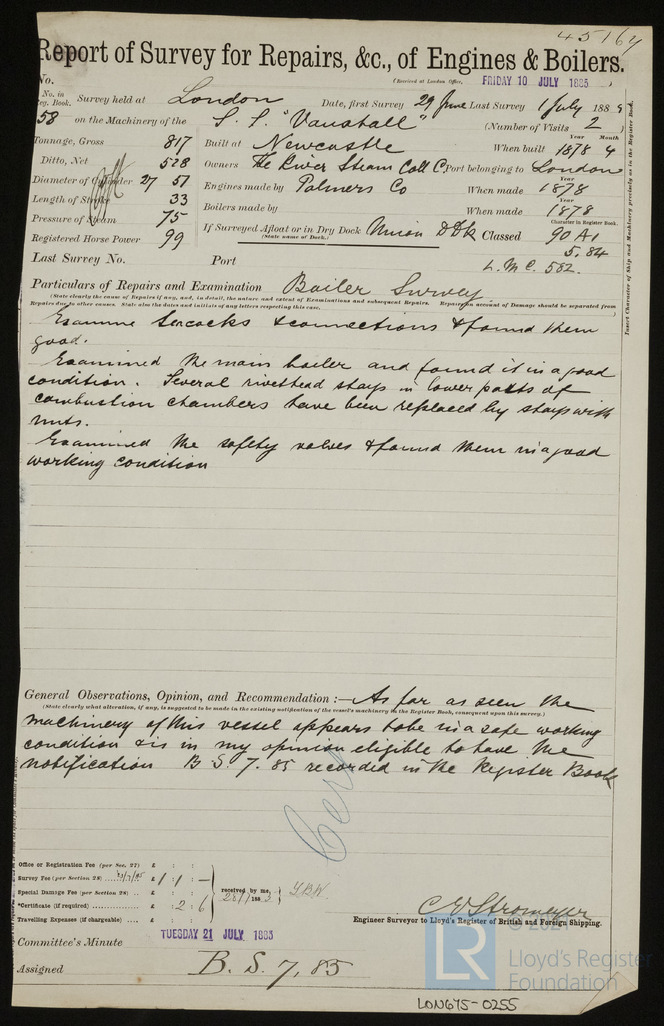 45164
Report of Survey for Repairs, &c., of Engines & Boilers.
(Received at London Office, FRIDAY 10 JULY 1885 )
No.
No. in Reg. Book. Survey held at London Date, first Survey 29 June Last Survey 1 July 1885
58 on the Machinery of the S. S. "Vauxhall" (Number of Visits 2 )
Tonnage, Gross 817 Built at Newcastle When built Year 1878 Month 4
Ditto, Net 528 Owners The River Steam Coll Co Port belonging to London
Diameter of Cylinder 27 51 Engines made by Palmers Co When made Year 1878
Length of Stroke 33 Boilers made by When made Year 1878
Pressure of Steam 75 If Surveyed Afloat or in Dry Dock Union D Dk Classed Character in Register Book. 90 A1
(State name of Dock.)
Registered Horse Power 99 5.84
Last Survey No. Port L.M.C. 582.
Particulars of Repairs and Examination Boiler Survey
(State clearly the cause of Repairs if any, and, in detail, the nature and extent of Examinations and subsequent Repairs. Repairs on account of Damage should be separated from
Repairs due to other causes. State also the dates and initials of any letters respecting this case.
Examine Seacocks & connections & found them
good.
Examined the main boiler and found it in a good
condition. Several rivethead stays in lower parts of
combustion chambers have been replaced by stays with
nuts.
Examined the safety valves & found them in a good
working condition
Insert Character of Ship and Machinery precisely as in the Register Book.
General Observations, Opinion, and Recommendation :— As far as seen the
(State clearly what alteration, if any, is suggested to be made in the existing notification of the vessel's machinery in the Register Book, consequent upon this survey.)
machinery of this vessel appears to be in a safe working
condition & is in my opinion eligible to have the
notification B S. 7. 85 recorded in the Register Book
Cert
Office or Registration Fee (per Sec. 27) £ : :
Survey Fee (per Section 28) £ 1 : 1 : —
Special Damage Fee (per Section 28) £ : :
*Certificate (if required) £ : 2 : 6
Travelling Expenses (if chargeable) £ : :
received by me,
28/7 1885
C E Stromeyer
Engineer Surveyor to Lloyd's Register of British and Foreign Shipping.
Committee's Minute TUESDAY 21 JULY 1885
Assigned B. S. 7, 85
© 2021
LR
Lloyd's Register
Foundation
LON675-0255